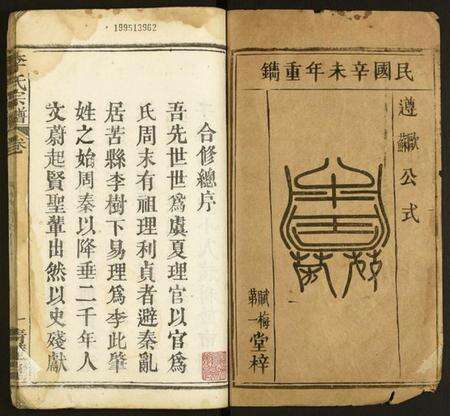 民國辛未年重鐫
遵歐蘇公式
賦梅第一堂梓
199513962
合修總序
吾先世世爲虞夏理官以官爲
氏周末有祖理利貞者避秦亂
居苦縣李樹下易理爲李此肇
姓之始周秦以降垂二千年人
文蔚起賢聖輩出然以史殘獻
李氏宗譜
卷
一